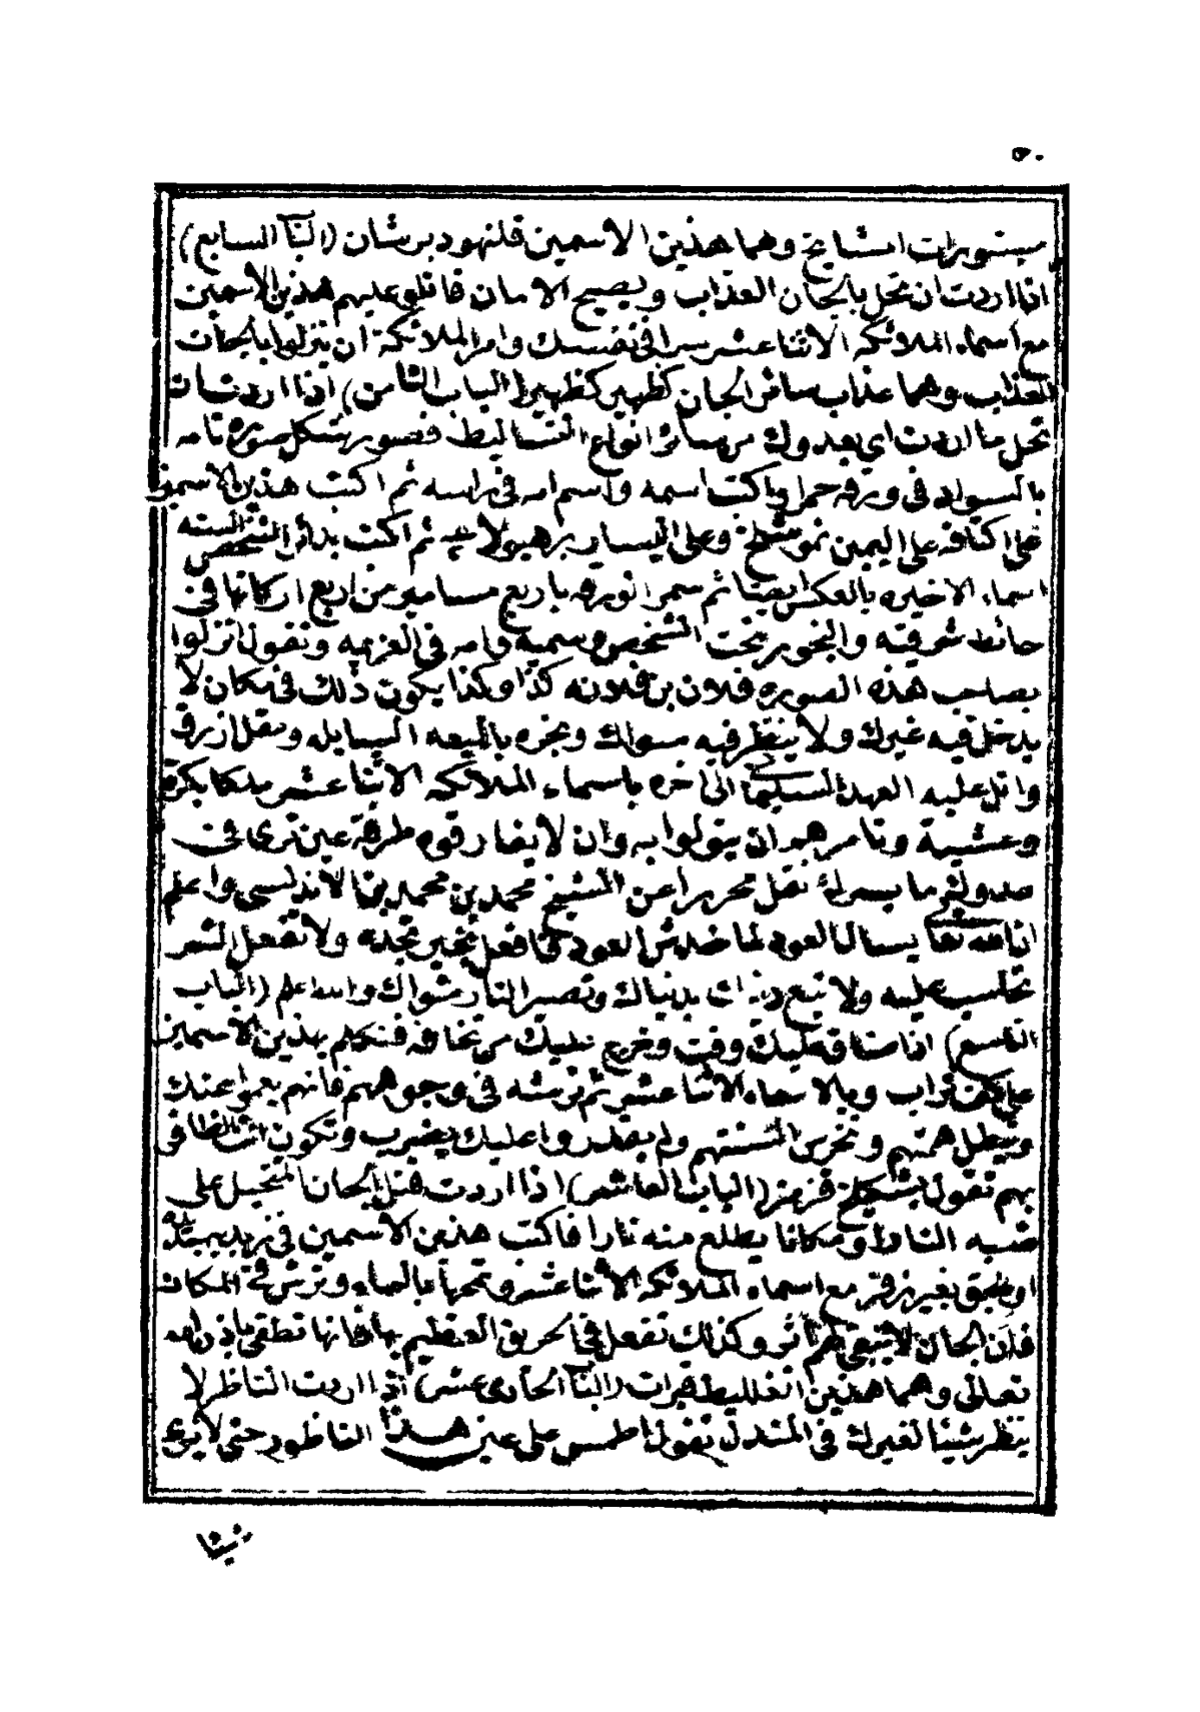 ٥٠
وهما هذين الاسمين قلنهود برشان (البآ السابع)
اذا اردت ان تحل بالجان العذاب ويصيح الامان فاتلو عليهم هذين الاسمين
مع اسماء الملائكه الاثنا عشر سرا فى نفسك وامر الملائكة ان ينزلوا بالجان
العذاب وهما عذاب سائر الجان كظهير كظهير (الباب الثامن) اذا اردت ان
تحل ما اردت اى بعدوك من سائر انواع التساليط فصور بشكل صوره تامه
بالسواد فى ورقه حمرا واكتب اسمه واسم امه فى راسه ثم اكتب هذين الاسمين
على اكتافه على اليمين وعلى اليسار برهيولا ثم اكتب بدائر الشخص الستة
اسماء الاخيره بالعكس ايضا ثم سمر الورقه باربع مسامير من اربع اركانها فى
حائط شرقيه والبخور تحت الشخص وسميه وامه فى العزيمه وتقول انزلوا
بصاحب هذه الصوره فلان بن فلانه كذا وكذا يكون ذلك فى مكان لا
يدخل فيه غيرك ولا ينظر فيه سواك وبخره بالميعه السايله ومقل ازرق
واتل عليه العهد السليمانى الى اخره باسماء الملائكه الاثنا عشر ملكا بكرة
وعشية وتامرهم ان ينزلوا به وان لا يفارقوه طرفة عين ترى فى
عدوك ما يسرك نقل محررا عن الشيخ محمد بن محمد بنا الاندلسى واعلم
ان الله تعا يسال العود لما خدش العود فافعل الخير تجده ولا تفعل الشر
تحاسب عليه ولا تبع دينك بدنياك وتصير النار مثواك والله اعلم (الباب
التاسع) اذا ضاق عليك وقت وخرج عليك من تخافه فتكلم بهذين الاسمين
على كف تراب وبالاسماء الاثنا عشر ثم ترشه فى وجوههم فانهم يعموا عنك
وتبطل همتهم وتخرس السنتهم ولم يقدروا عليك بضرب وتكون انت الظافر
بهم تقول (الباب العاشر) اذا اردت قتل الجان المتخيل على
شبه النار او مكانا يطلع منه نارا فاكتب هذين الاسمين فى
او طبق بغير زفر مع اسماء الملائكه الاثنا عشر وتمحها بالماء وترش فى المكان
فان الجان لا يبقى لهم اثر وكذلك تفعل فى الحريق العظيم بها فانها تطفى باذن الله
تعالى وهما هذين (البآ الحادى عشر) اذا اردت الناظر لا
ينظر شيئا لغيرك فى المندل تقول اطمس على عين هذا الناظور حتى لا يرى
شيئا